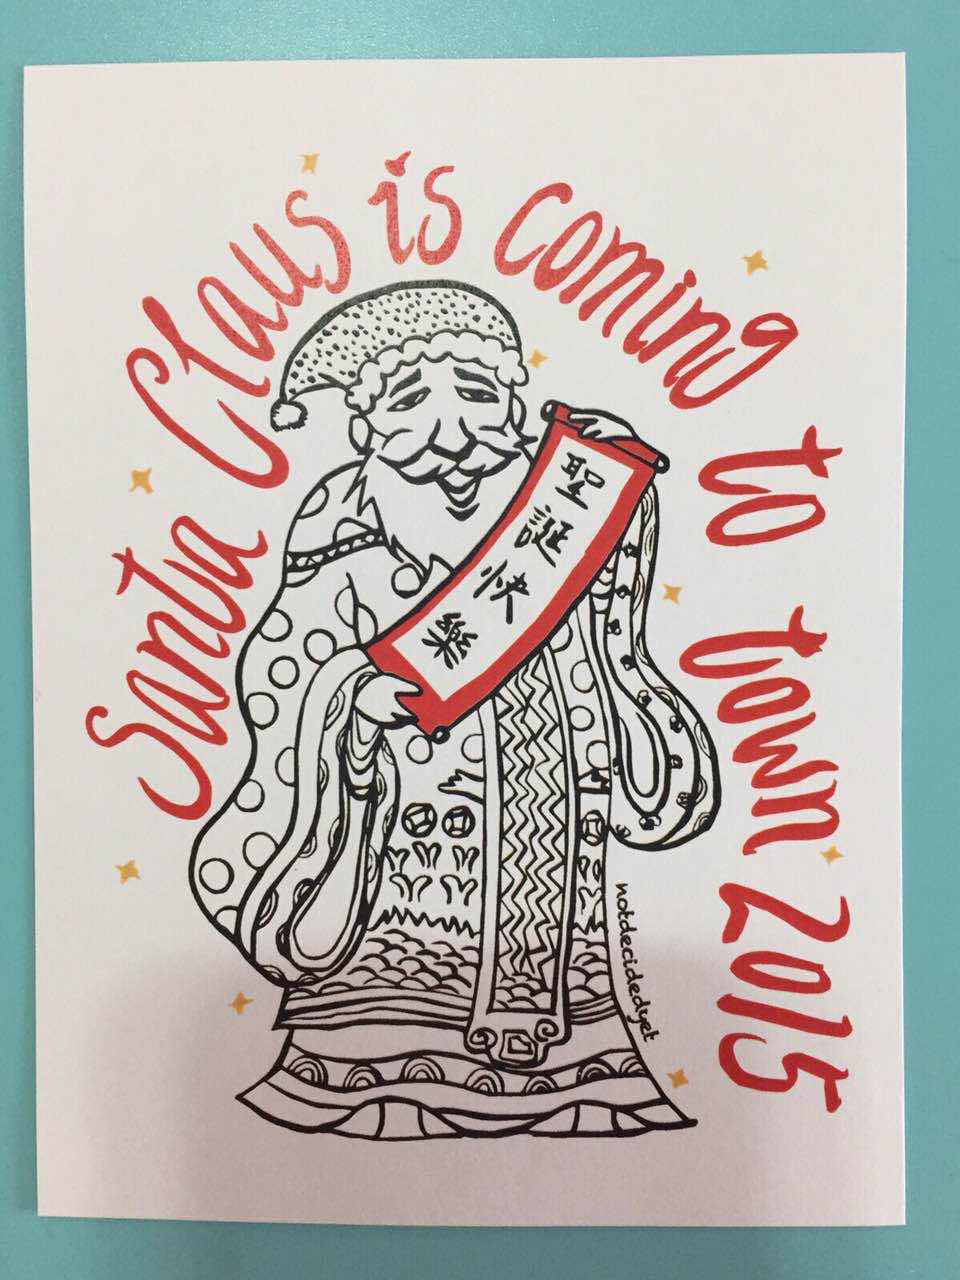 Santa Claus is coming to town 2015
聖誕快樂
notdecidedyet